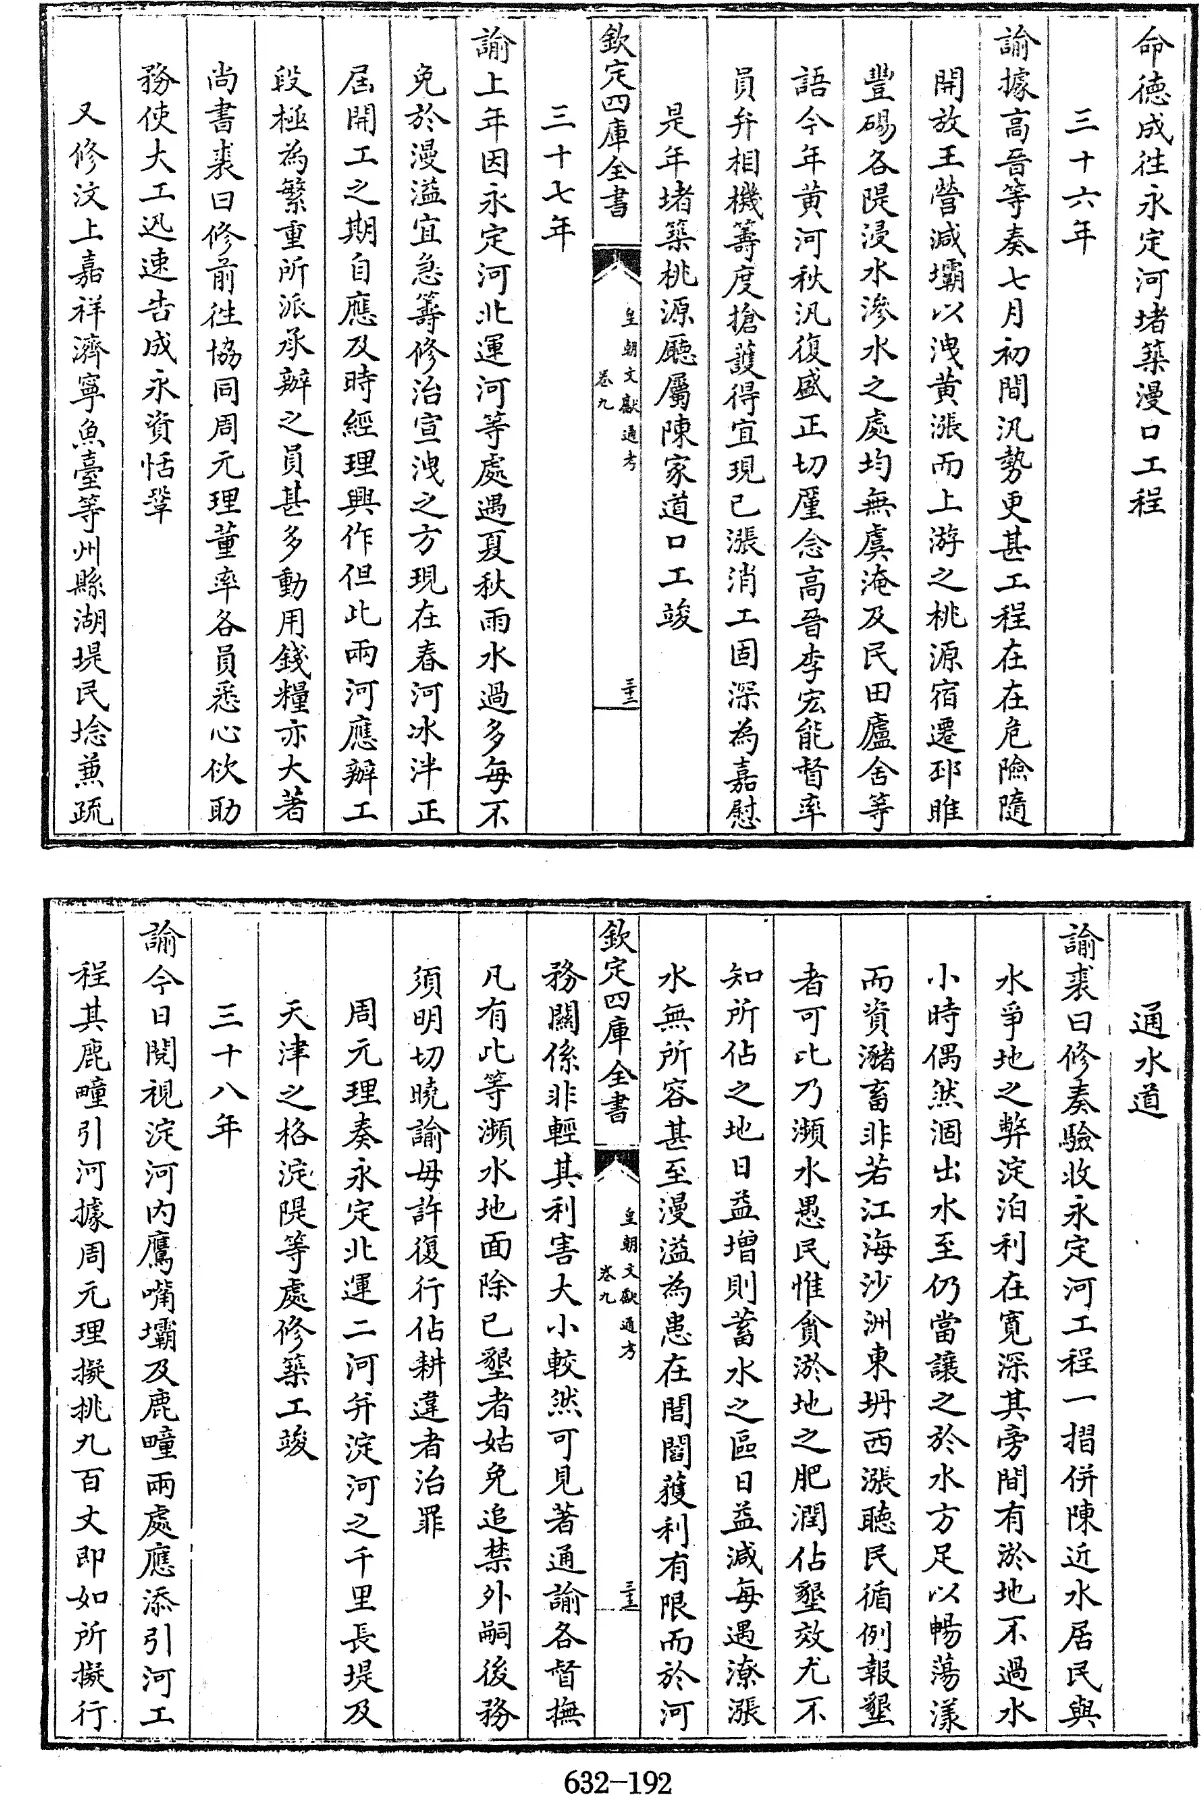 命德成往永定河堵築漫口工程
三十六年
諭據高晉等奏七月初間汛勢更甚工程在在危險隨
開放王營減壩以洩黄漲而上游之桃源宿遷邳睢
豐碭各隄浸水滲水之處均無虞淹及民田廬舍等
語今年黄河秋汛復盛正切廑念高晉李宏能督率
員弁相機籌度搶護得宜現已漲消工固深為嘉慰
是年堵築桃源廳屬陳家道口工竣
欽定四庫全書
皇朝文獻通考
卷九
三十七年
諭上年因永定河北運河等處遇夏秋雨水過多每不
免於漫溢宜急籌修治宣洩之方現在春河冰泮正
屆開工之期自應及時經理興作但此兩河應辦工
段極為繁重所派承辦之員甚多動用錢糧亦大著
尚書裘曰修前往協同周元理董率各員悉心佽助
務使大工迅速告成永資恬鞏
又修汶上嘉祥濟寧魚臺等州縣湖堤民埝兼疏
通水道
諭裘曰修奏驗收永定河工程一摺併陳近水居民與
水爭地之弊淀泊利在寛深其旁間有淤地不過水
小時偶然涸出水至仍當讓之於水方足以暢蕩漾
而資瀦畜非若江海沙洲東坍西漲聽民循例報墾
者可比乃瀕水愚民惟貪淤地之肥潤佔墾效尤不
知所佔之地日益增則蓄水之區日益減每遇潦漲
水無所容甚至漫溢為患在閭閻獲利有限而於河
欽定四庫全書
皇朝文獻通考
卷九
務關係非輕其利害大小較然可見著通諭各督撫
凡有此等瀕水地面除已墾者姑免追禁外嗣後務
須明切曉諭毋許復行佔耕違者治罪
周元理奏永定北運二河并淀河之千里長堤及
天津之格淀隄等處修築工竣
三十八年
諭今日閱視淀河内鷹嘴壩及鹿疃兩處應添引河工
程其鹿疃引河據周元理擬挑九百丈即如所擬行
632-192